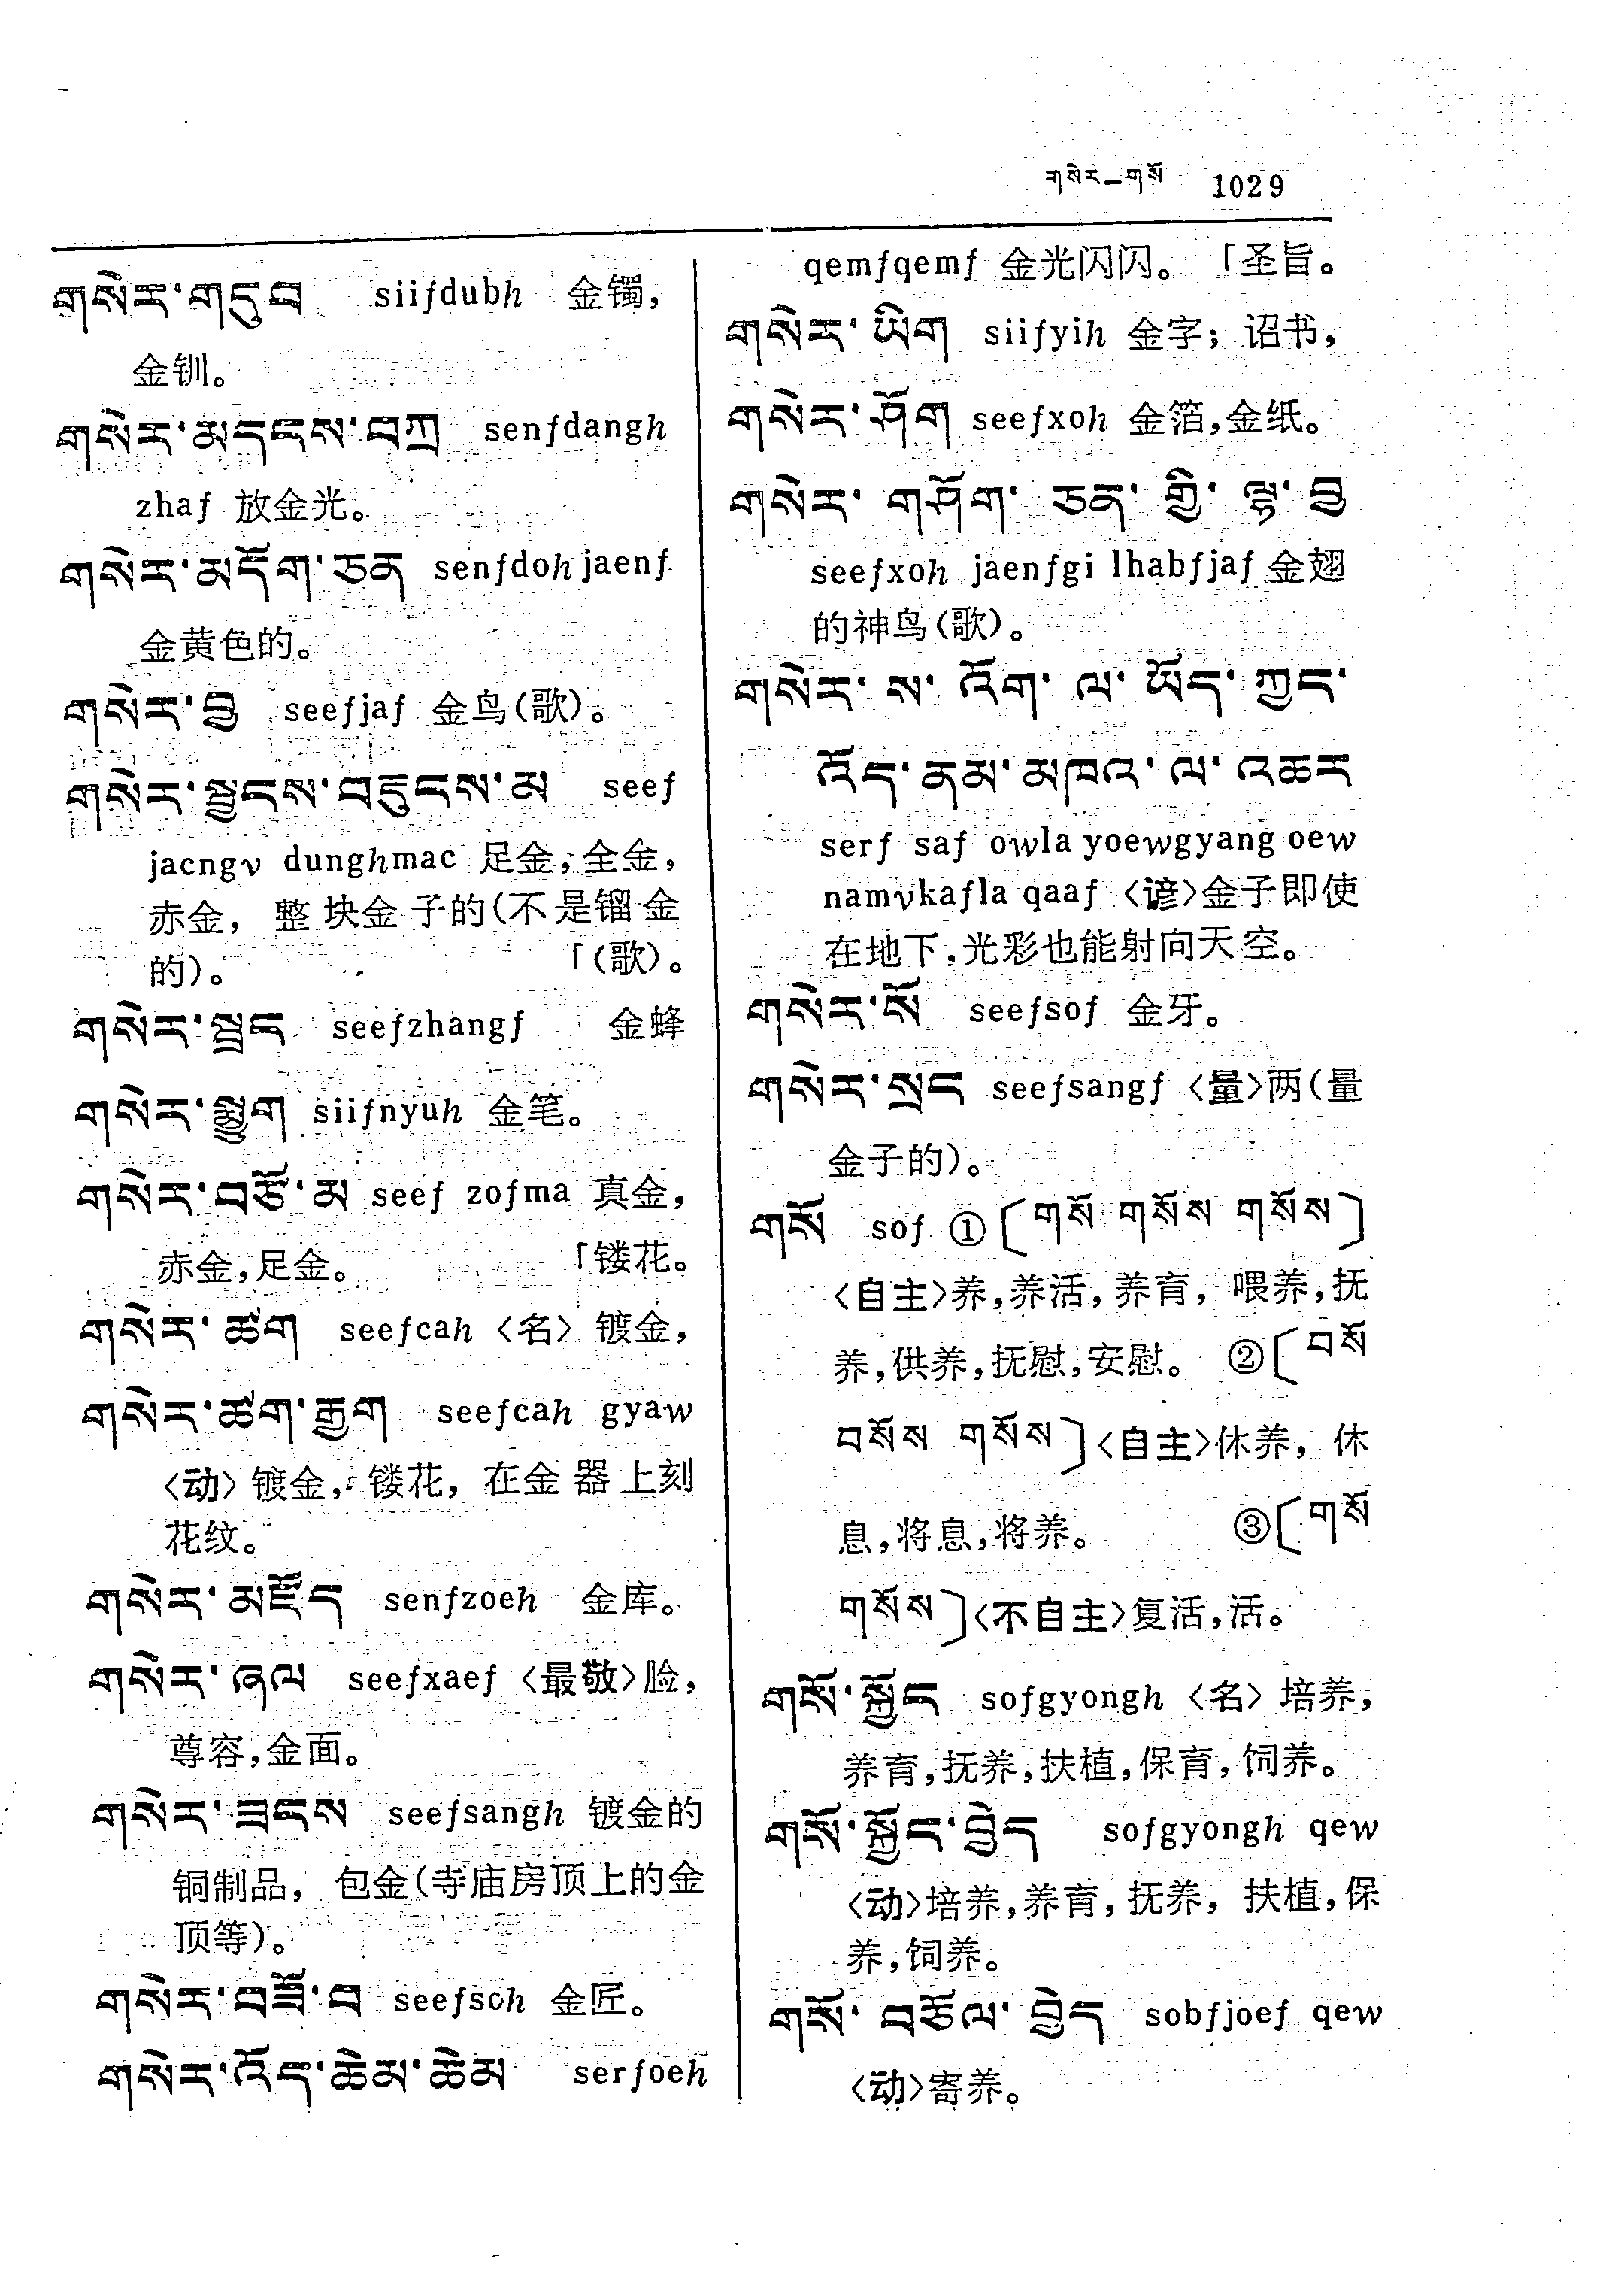 གསེར–གསོ 1029
གསེར་གདུབ siifdubh 金镯，
金钏。
གསེར་མདངས་བཀྲ senfdangh
zhaf 放金光。
གསེར་མདོག་ཅན senfdoh jaenf
金黄色的。
གསེར་བྱ seefjaf 金鸟（歌）。
གསེར་སྦྱངས་བཏུངས་མ seef
jacngv dunghmac 足金，全金，
赤金，整块金子的（不是镏金
的）。 「（歌）。
གསེར་སྦྲང seefzhangf 金蜂
གསེར་སྨྱུག siifnyuh 金笔。
གསེར་བཙོ་མ seef zofma 真金，
赤金，足金。 「镂花。
གསེར་ཚག seefcah 〈名〉镀金，
གསེར་ཚག་རྒྱག seefcah gyaw
〈动〉镀金，镂花，在金器上刻
花纹。
གསེར་མཛོད senfzoeh 金库。
གསེར་ཞལ seefxaef 〈最敬〉脸，
尊容，金面。
གསེར་ཟངས seefsangh 镀金的
铜制品，包金（寺庙房顶上的金
顶等）。
གསེར་བཟོ་བ seefsoh 金匠。
གསེར་འོད་ཆེམ་ཆེམ serfoeh
qemfqemf 金光闪闪。 「圣旨。
གསེར་ཡིག siifyih 金字；诏书，
གསེར་ཤོག seefxoh 金箔，金纸。
གསེར་གཤོག་ཅན་གྱི་ལྷ་བྱ
seefxoh jaenfgi lhabfjaf 金翅
的神鸟（歌）。
གསེར་ས་འོག་ལ་ཡོད་ཀྱང་
འོད་ནམ་མཁའ་ལ་འཆར
serf saf owla yoewgyang oew
namvkafla qaaf 〈谚〉金子即使
在地下，光彩也能射向天空。
གསེར་སོ seefsof 金牙。
གསེར་སྲང seefsangf 〈量〉两（量
金子的）。
གསོ sof ①〔གསོ གསོས གསོས〕
〈自主〉养，养活，养育，喂养，抚
养，供养，抚慰，安慰。 ②〔བསོ
བསོས གསོས〕〈自主〉休养，休
息，将息，将养。 ③〔གསོ
གསོས〕〈不自主〉复活，活。
གསོ་སྐྱོང sofgyongh 〈名〉培养，
养育，抚养，扶植，保育，饲养。
གསོ་སྐྱོང་བྱེད sofgyongh qew
〈动〉培养，养育，抚养，扶植，保
养，饲养。
གསོ་བཅོལ་བྱེད sobfjoef qew
〈动〉寄养。